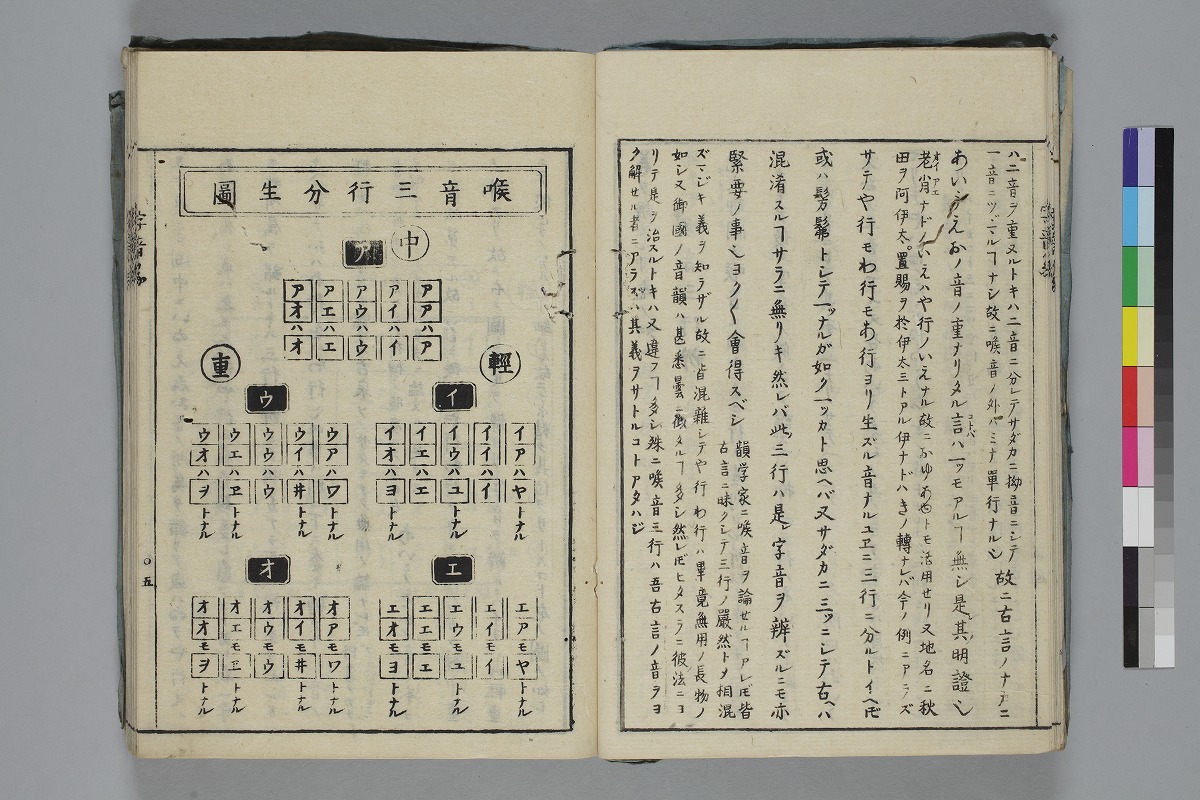 ハ二音ヲ重又ルトキハ二音ニ分レテサダカニ拗音ニシテ
一音ニツヾマルヿナシ故ニ喉音ノ外ハミナ單行ナルシ 故ニ古言ノナカニ
あいうえおノ音ノ重ナリタル言ハ一ッモアルヿ無シ是其明證シ
田ヲ阿伊太。置賜ヲ於伊太三トアル伊ナドハきノ轉ナレバ今ノ例ニアラズ
サテや行モわ行モあ行ヨリ生ズル音ナルユヱニ三行ニ分ルトイヘモ
或ハ髣髴トシテ一ッナルガ如ク一ッカト思ヘバ又サダカニ三ッニシテ古ヘハ
混淆スルヿサラニ無リキ然レバ此三行ハ是字音ヲ辨ズルニモ亦
緊要ノ事シヨク〱會得スベシ
韻学家ニ喉音ヲ論セルヿアレ𪜈皆
古言ニ昧クシテ三行ノ嚴然トメ相混
ズマジキ義ヲ知ラザル故ニ皆混雜シテや行わ行ハ畢竟無用ノ長物ノ
如シ又御國ノ音韻ハ甚悉曇ニ徴タルヿ多シ然レ𪜈ヒタスラニ彼法ニヨ
リテ是ヲ治スルトキハ又違フヿ多シ殊ニ喉音三行ハ吾古言ノ音ヲヨ
ク解セル者ニアラズハ其義ヲサトルコトアタハジ
喉音三行分生圖
中
ア
アアハア
アイハイ
アウハウ
アエハエ
アオハオ
輕
イ
イアハヤトナル
イイハイ
イウハユトナル
イエハエ
イオハヨトナル
重
ウ
ウアハワトナル
ウイハ井トナル
ウウハウ
ウエハヱトナル
ウオハヲトナル
エ
エアモヤトナル
エイモイ
エウモユトナル
エエモエ
エオモヨトナル
オ
オアモワトナル
オイモ井トナル
オウモウ
オエモヱトナル
オオモヲトナル
○五